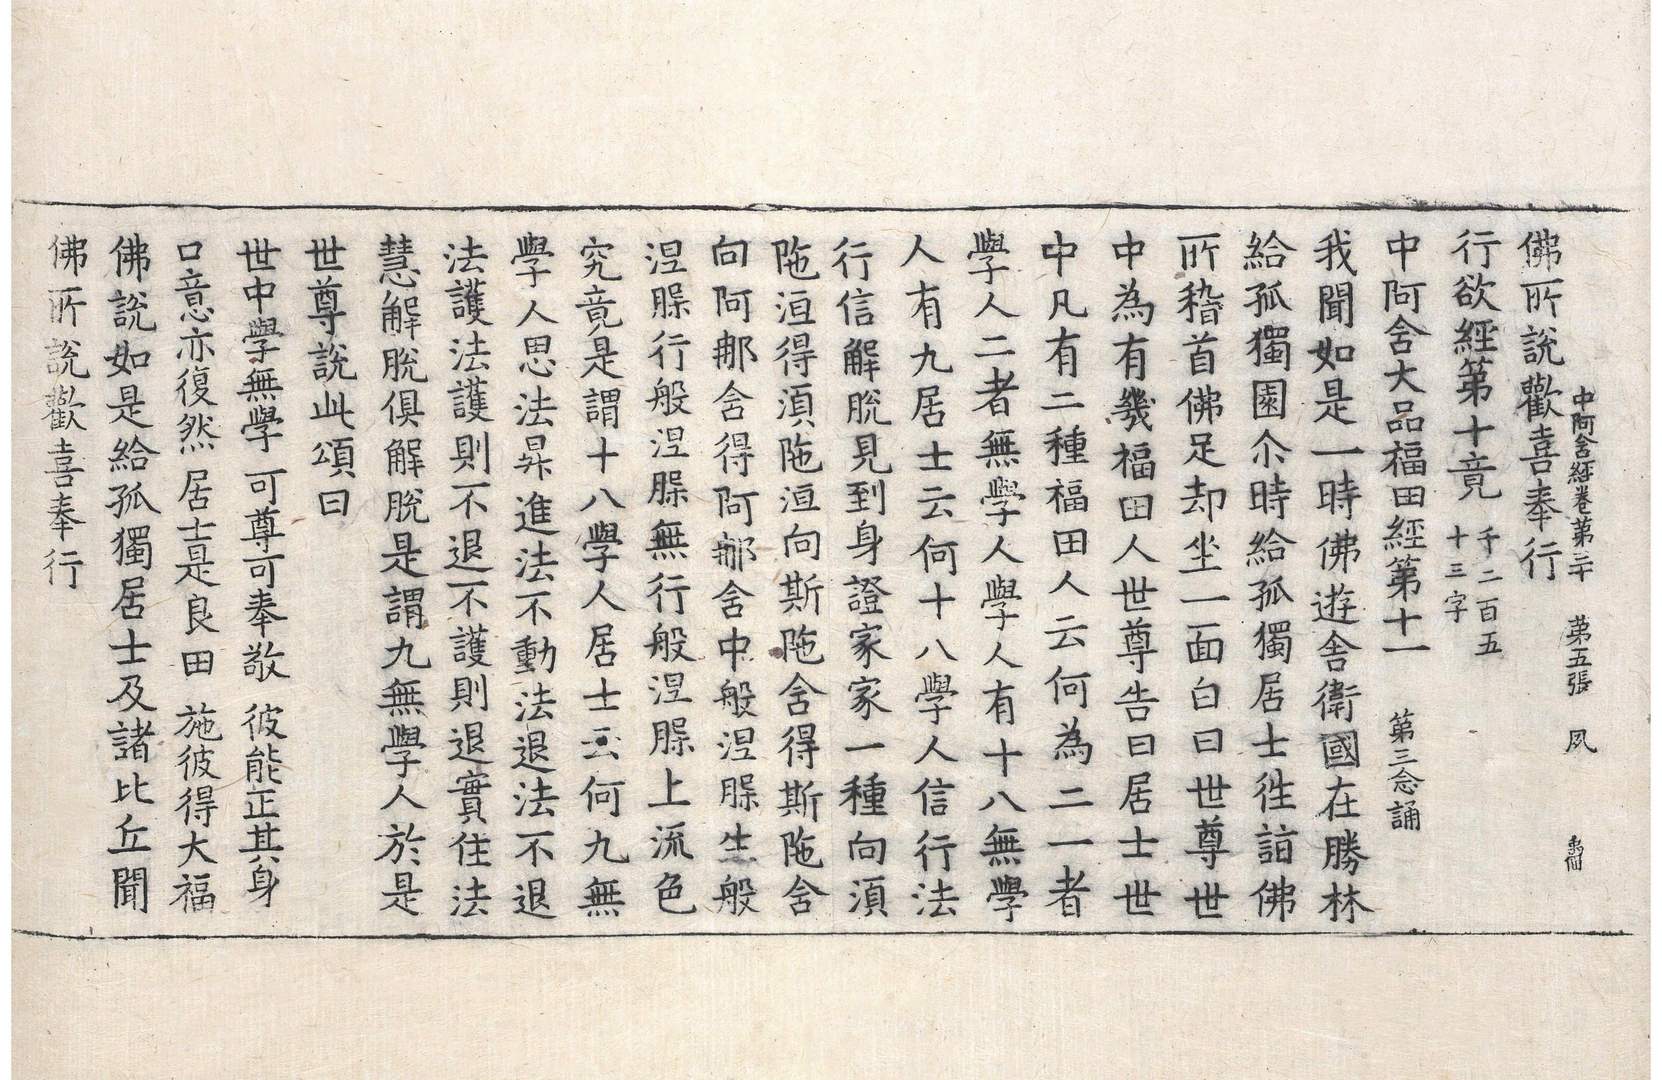 中阿含經卷第三十 第五張 夙
佛所說歡喜奉行
行欲經第十竟 千二百五十三字
中阿含大品福田經第十一 第三念誦
我聞如是一時佛遊舍衛國在勝林
給孤獨園尒時給孤獨居士往詣佛
所稽首佛足却坐一面白曰世尊世
中為有幾福田人世尊告曰居士世
中凡有二種福田人云何為二一者
學人二者無學人學人有十八無學
人有九居士云何十八學人信行法
行信解脫見到身證家家一種向湏
陁洹得湏陁洹向斯陁舍得斯陁舍
向阿郍舍得阿郍舍中般涅槃生般
涅槃行般涅槃無行般涅槃上流色
究竟是謂十八學人居士云何九無
學人思法昇進法不動法退法不退
法護法護則不退不護則退實住法
慧解脫俱解脫是謂九無學人於是
世尊說此頌曰
世中學無學 可尊可奉敬 彼能正其身
口意亦復然 居士是良田 施彼得大福
佛說如是給孤獨居士及諸比丘聞
佛所說歡喜奉行